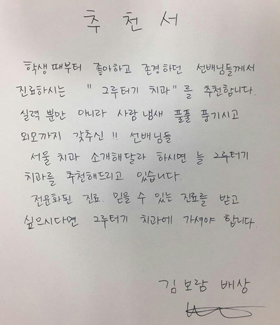 추 천 서
학생 때부터 좋아하고 존경하던 선배님들께서
진료하시는 " 그루터기 치과" 를 추천합니다.
실력 뿐만 아니라 사람 냄새 풀풀 풍기시고
외모까지 갖추신 !! 선배님들
서울 치과 소개해달라 하시면 늘 그루터기
치과를 추천해드리고 있습니다.
전문화된 진료. 믿을 수 있는 진료를 받고
싶으시다면 그루터기 치과에 가셔야 합니다.
김보랑 배상